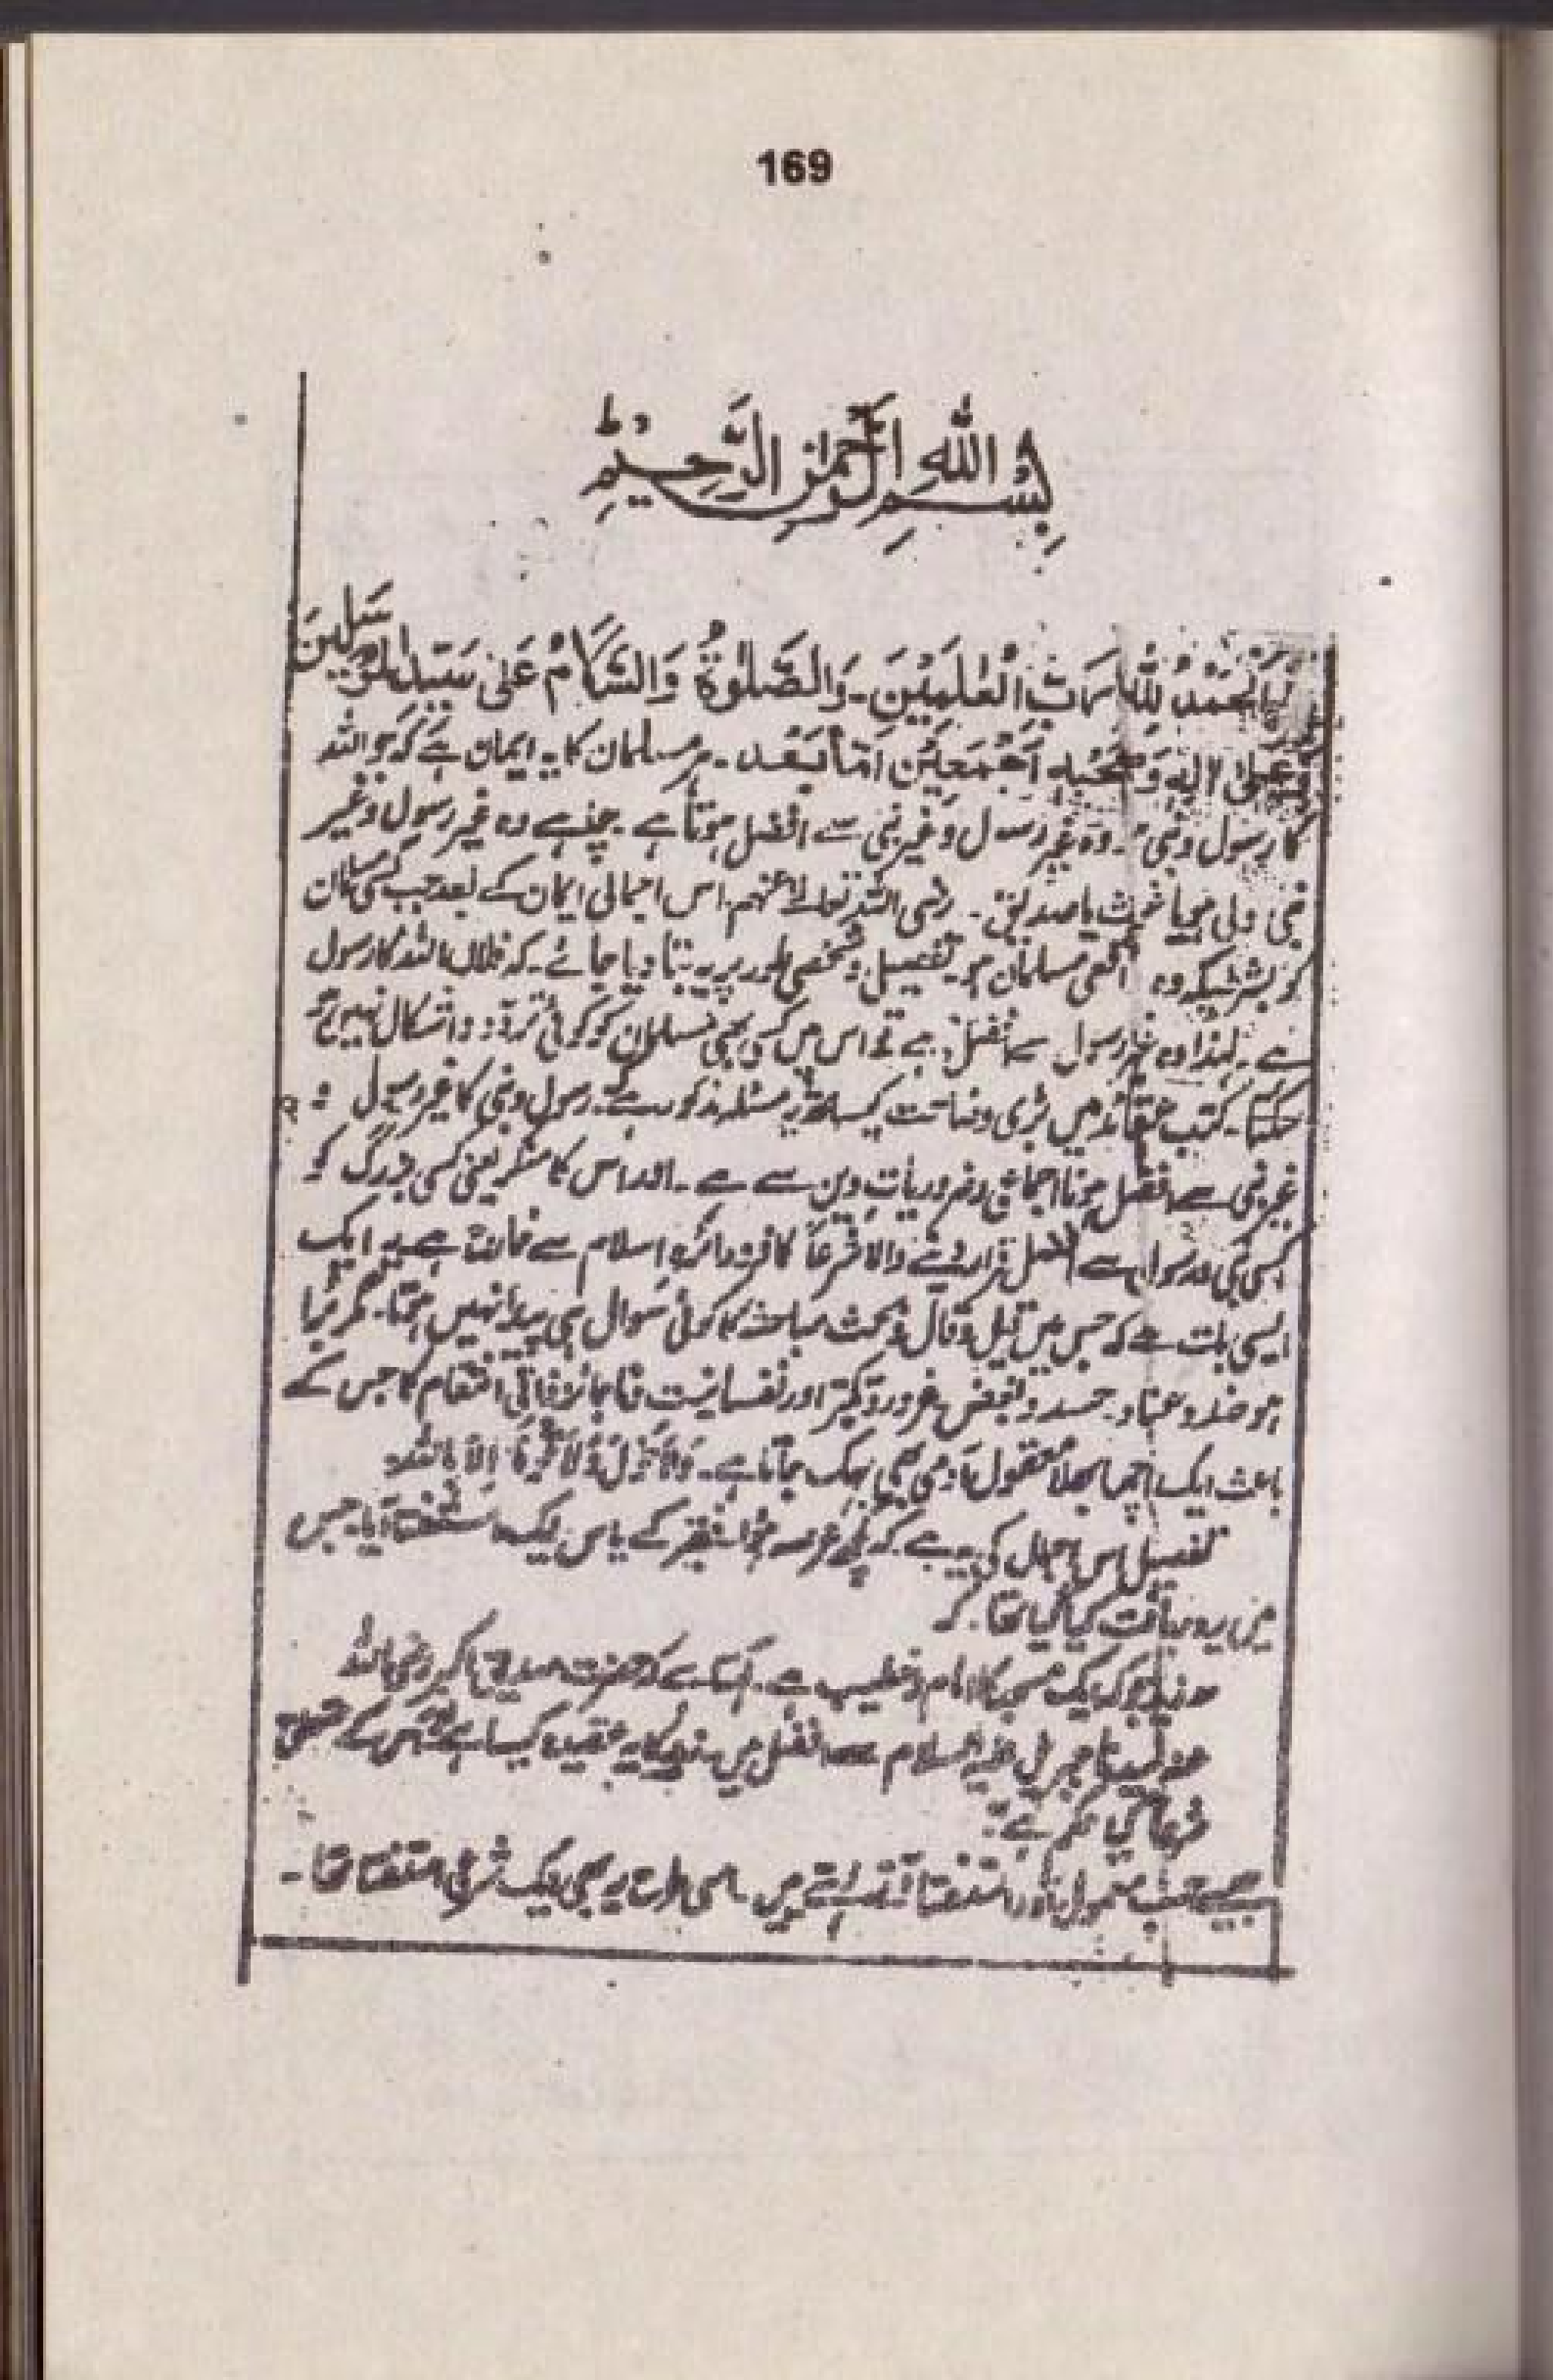 169
بِسْمِ اللّٰهِ الرَّحْمٰنِ الرَّحِيْمِ
اَلْحَمْدُ لِلّٰهِ رَبِّ الْعٰلَمِيْنَ۔ وَالصَّلٰوةُ وَالسَّلَامُ عَلٰى سَيِّدِ الْمُرْسَلِينَ
وَعَلىٰ اٰلِهٖ وَصَحْبِهٖ اَجْمَعِيْنَ اَمَّا بَعْد۔ ہر مسلمان کا یہ ایمان ہے کہ جو اللہ
کا رسول و نبی ہے۔ وہ غیر رسول و غیر نبی سے افضل ہوتا ہے۔ چاہے وہ غیر رسول و غیر
نبی ولی ہو یا غوث یا صدیق۔ رضی اللہ تعالےٰ عنہم۔ اس اجمالی ایمان کے بعد جب کسی مسلمان
کو بشرطیکہ وہ واقعی مسلمان ہو۔ تفصیلی و شخصی طور پر یہ بتا دیا جائے۔ کہ فلاں اللہ کا رسول
ہے۔ لہٰذا وہ غیر رسول سے افضل ہے تو اس میں کسی بھی مسلمان کو کوئی تردد و اشکال نہیں ہو
سکتا۔ کتب عقائد میں بڑی وضاحت کیساتھ یہ مسئلہ مذکور ہے کہ رسول و نبی کا غیر رسول و
غیر نبی سے افضل ہونا اجماعی و ضروریاتِ دین سے ہے۔ اور اس کا منکر یعنی کسی بزرگ کو
کسی نبی و رسول سے افضل قرار دینے والا شرعاً کافر و دائرہ اسلام سے خارج ہے یہ ایک
ایسی بات ہے کہ جس میں قیل و قال و بحث مباحثہ کا کوئی سوال ہی پیدا نہیں ہوتا۔ مگر بُرا
ہو ضد و عناد۔ حسد و بغض، غرور و تکبر اور نفسانیت و ناجائز ذاتی انتقام کا جس کے
باعث ایک اچھا بھلا معقول آدمی بھی بہک جاتا ہے۔ وَلَا حَوْلَ وَلَا قُوَّةَ اِلَّا بِاللّٰه
تفصیل اس اجمال کی یہ ہے۔ کہ کچھ عرصہ ہوا فقیر کے پاس ایک استفتاء آیا۔ جس
میں یہ دریافت کیا گیا تھا۔ کہ
زید جو کہ ایک مسجد کا امام و خطیب ہے۔ کہتا ہے کہ حضرت صدیق اکبر رضی اللہ
عنہ سیدنا جبریل علیہ السلام سے افضل ہیں۔ زید کا یہ عقیدہ کیسا ہے اور اس کے متعلق
شرعاً کیا حکم ہے؟
جیسے حسب معمول اور استفتاء آتے رہتے ہیں۔ اسی طرح یہ بھی ایک شرعی استفتا تھا۔